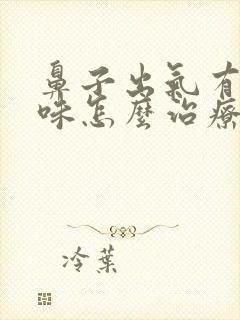 鼻子出氣有
味怎麼治療
冷葉